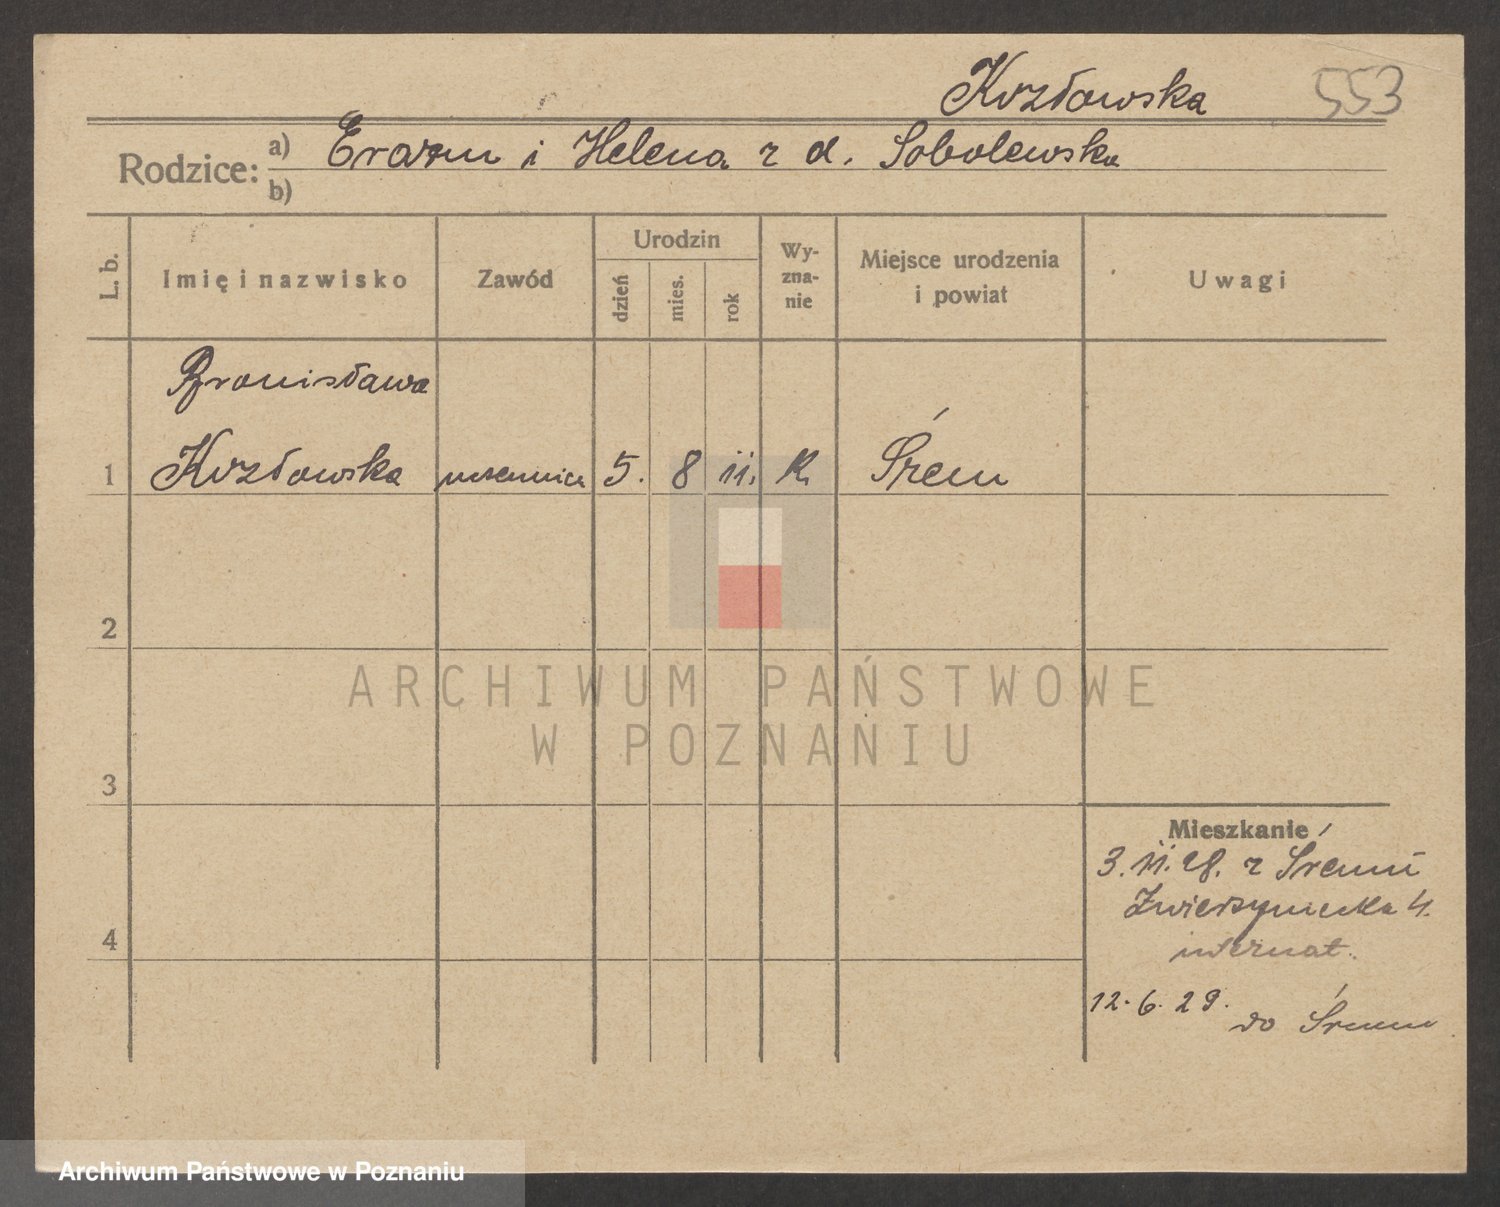 Kozłowska 553
Rodzice: a) Erazm i Helena z d. Sobolewska
b)
L. b. Imię i nazwisko Zawód Urodzin dzień mies. rok Wyzna-nie Miejsce urodzenia i powiat Uwagi
Bronisława
1 Kozłowska uczennica 5. 8 11. K. Śrem
2
ARCHIWUM PAŃSTWOWE
W POZNANIU
3
Mieszkanie
3. 11. 28. z Śremu
Zwierzyniecka 4.
4
internat.
12. 6. 29.
do Śremu
Archiwum Państwowe w Poznaniu